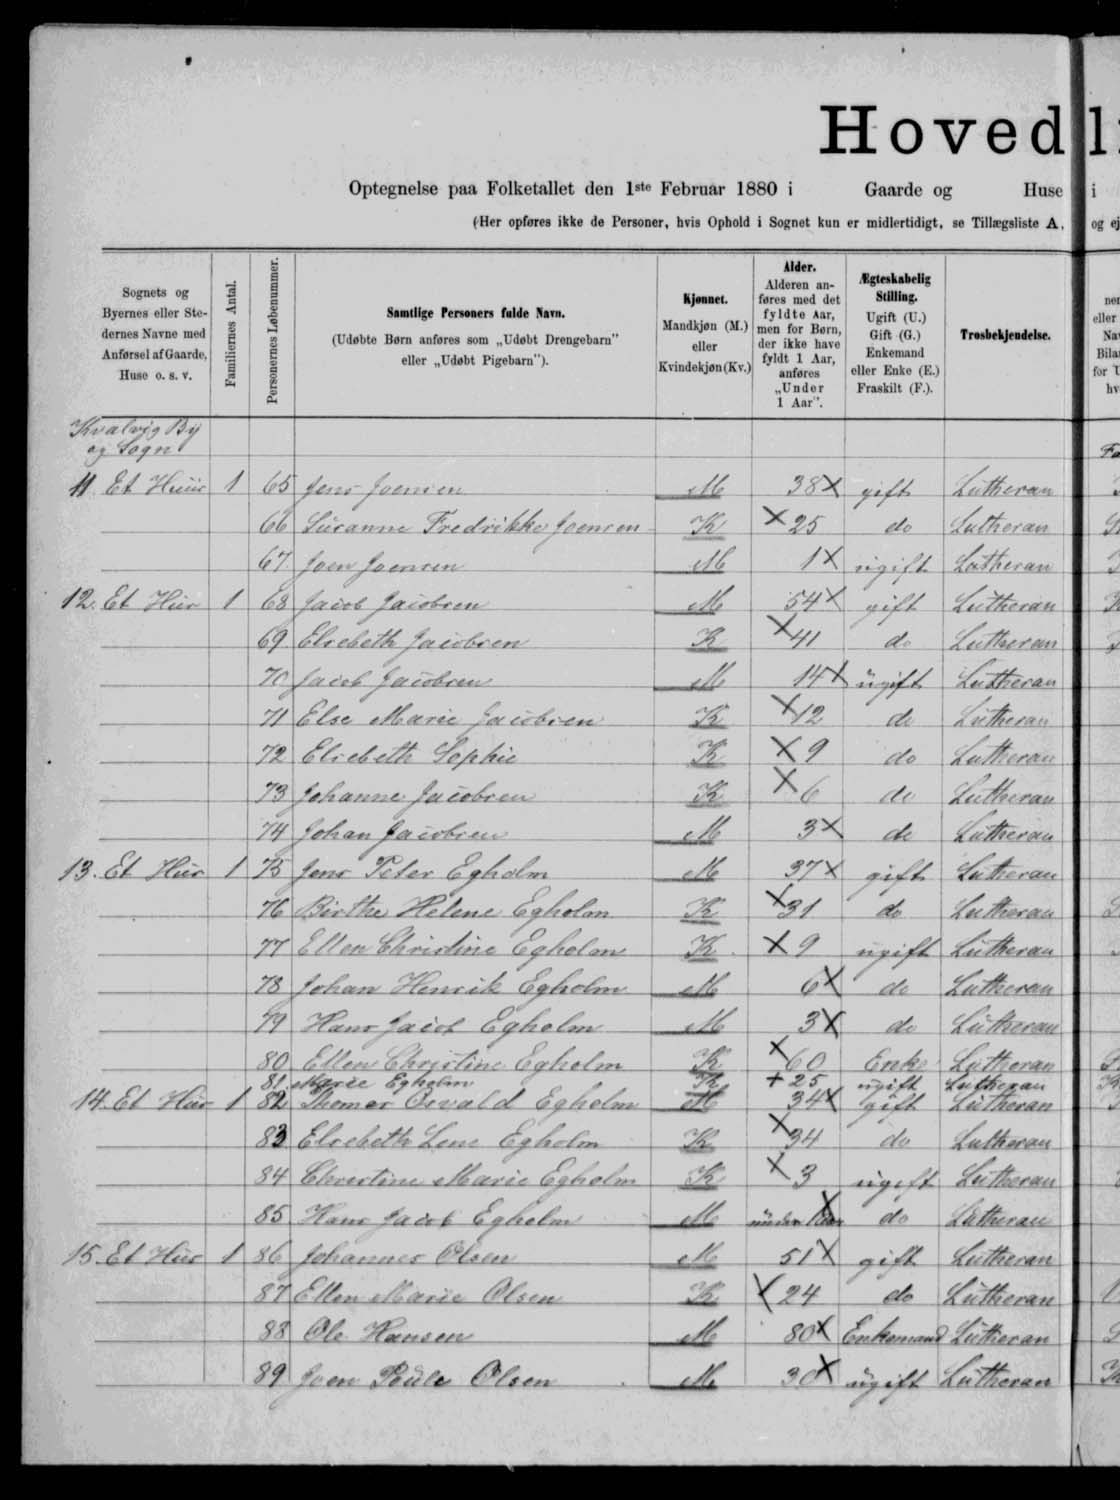 Hovedl
Optegnelse paa Folketallet den 1ste Februar 1880 i Gaarde og Huse i
(Her opføres ikke de Personer, hvis Ophold i Sognet kun er midlertidigt, se Tillægsliste A, og ej
Sognets og Byernes eller Stedernes Navne med Anførsel af Gaarde, Huse o. s. v.
Familiernes Antal.
Personernes Løbenummer.
Samtlige Personers fulde Navn.
(Udøbte Børn anføres som „Udøbt Drengebarn” eller „Udøbt Pigebarn”).
Kjønnet.
Mandkjøn (M.) eller Kvindekjøn (Kv.)
Alder.
Alderen anføres med det fyldte Aar, men for Børn, der ikke have fyldt 1 Aar, anføres „Under 1 Aar”.
Ægteskabelig Stilling.
Ugift (U.) Gift (G.) Enkemand eller Enke (E.) Fraskilt (F.).
Trosbekjendelse.
Kvalvig By
og Sogn
11. Et Huus 1 65 Jens Joensen M 38 x gift Lutheran
66 Susanne Fredrikke Joensen K x 25 do Lutheran
67. Joen Joensen M 1 x ugift Lutheran
12. Et Hus 1 68 Jacob Jacobsen M 54 x gift Lutheran
69. Elsebeth Jacobsen K x 41 do Lutheran
70 Jacob Jacobsen M 14 x ugift Lutheran
71 Else Marie Jacobsen K x 12 do Lutheran
72 Elsebeth Sophie K x 9 do Lutheran
73 Johanne Jacobsen K x 6 do Lutheran
74 Johan Jacobsen M 3 x do Lutheran
13. Et Hus 1 75 Jens Peter Egholm M 37 x gift Lutheran
76 Birthe Helene Egholm K x 31 do Lutheran
77 Ellen Christine Egholm K x 9 ugift Lutheran
78 Johan Henrik Egholm M 6 x do Lutheran
79 Hans Jacob Egholm M 3 x do Lutheran
80 Ellen Christine Egholm K x 60 Enke Lutheran
81. Marie Egholm K + 25 ugift Lutheran
14. Et Hus 1 82 Thomas Osvald Egholm M 34 x gift Lutheran
83 Elsebeth Lene Egholm K x 34 do Lutheran
84 Christine Marie Egholm K x 3 ugift Lutheran
85 Hans Jacob Egholm M under 1 Aar x do Lutheran
15. Et Hus 1 86 Johannes Olsen M 51 x gift Lutheran
87 Ellen Marie Olsen K x 24 do Lutheran
88 Ole Hansen M 80 x Enkemand Lutheran
89 Joen Poule Olsen M 30 x ugift Lutheran